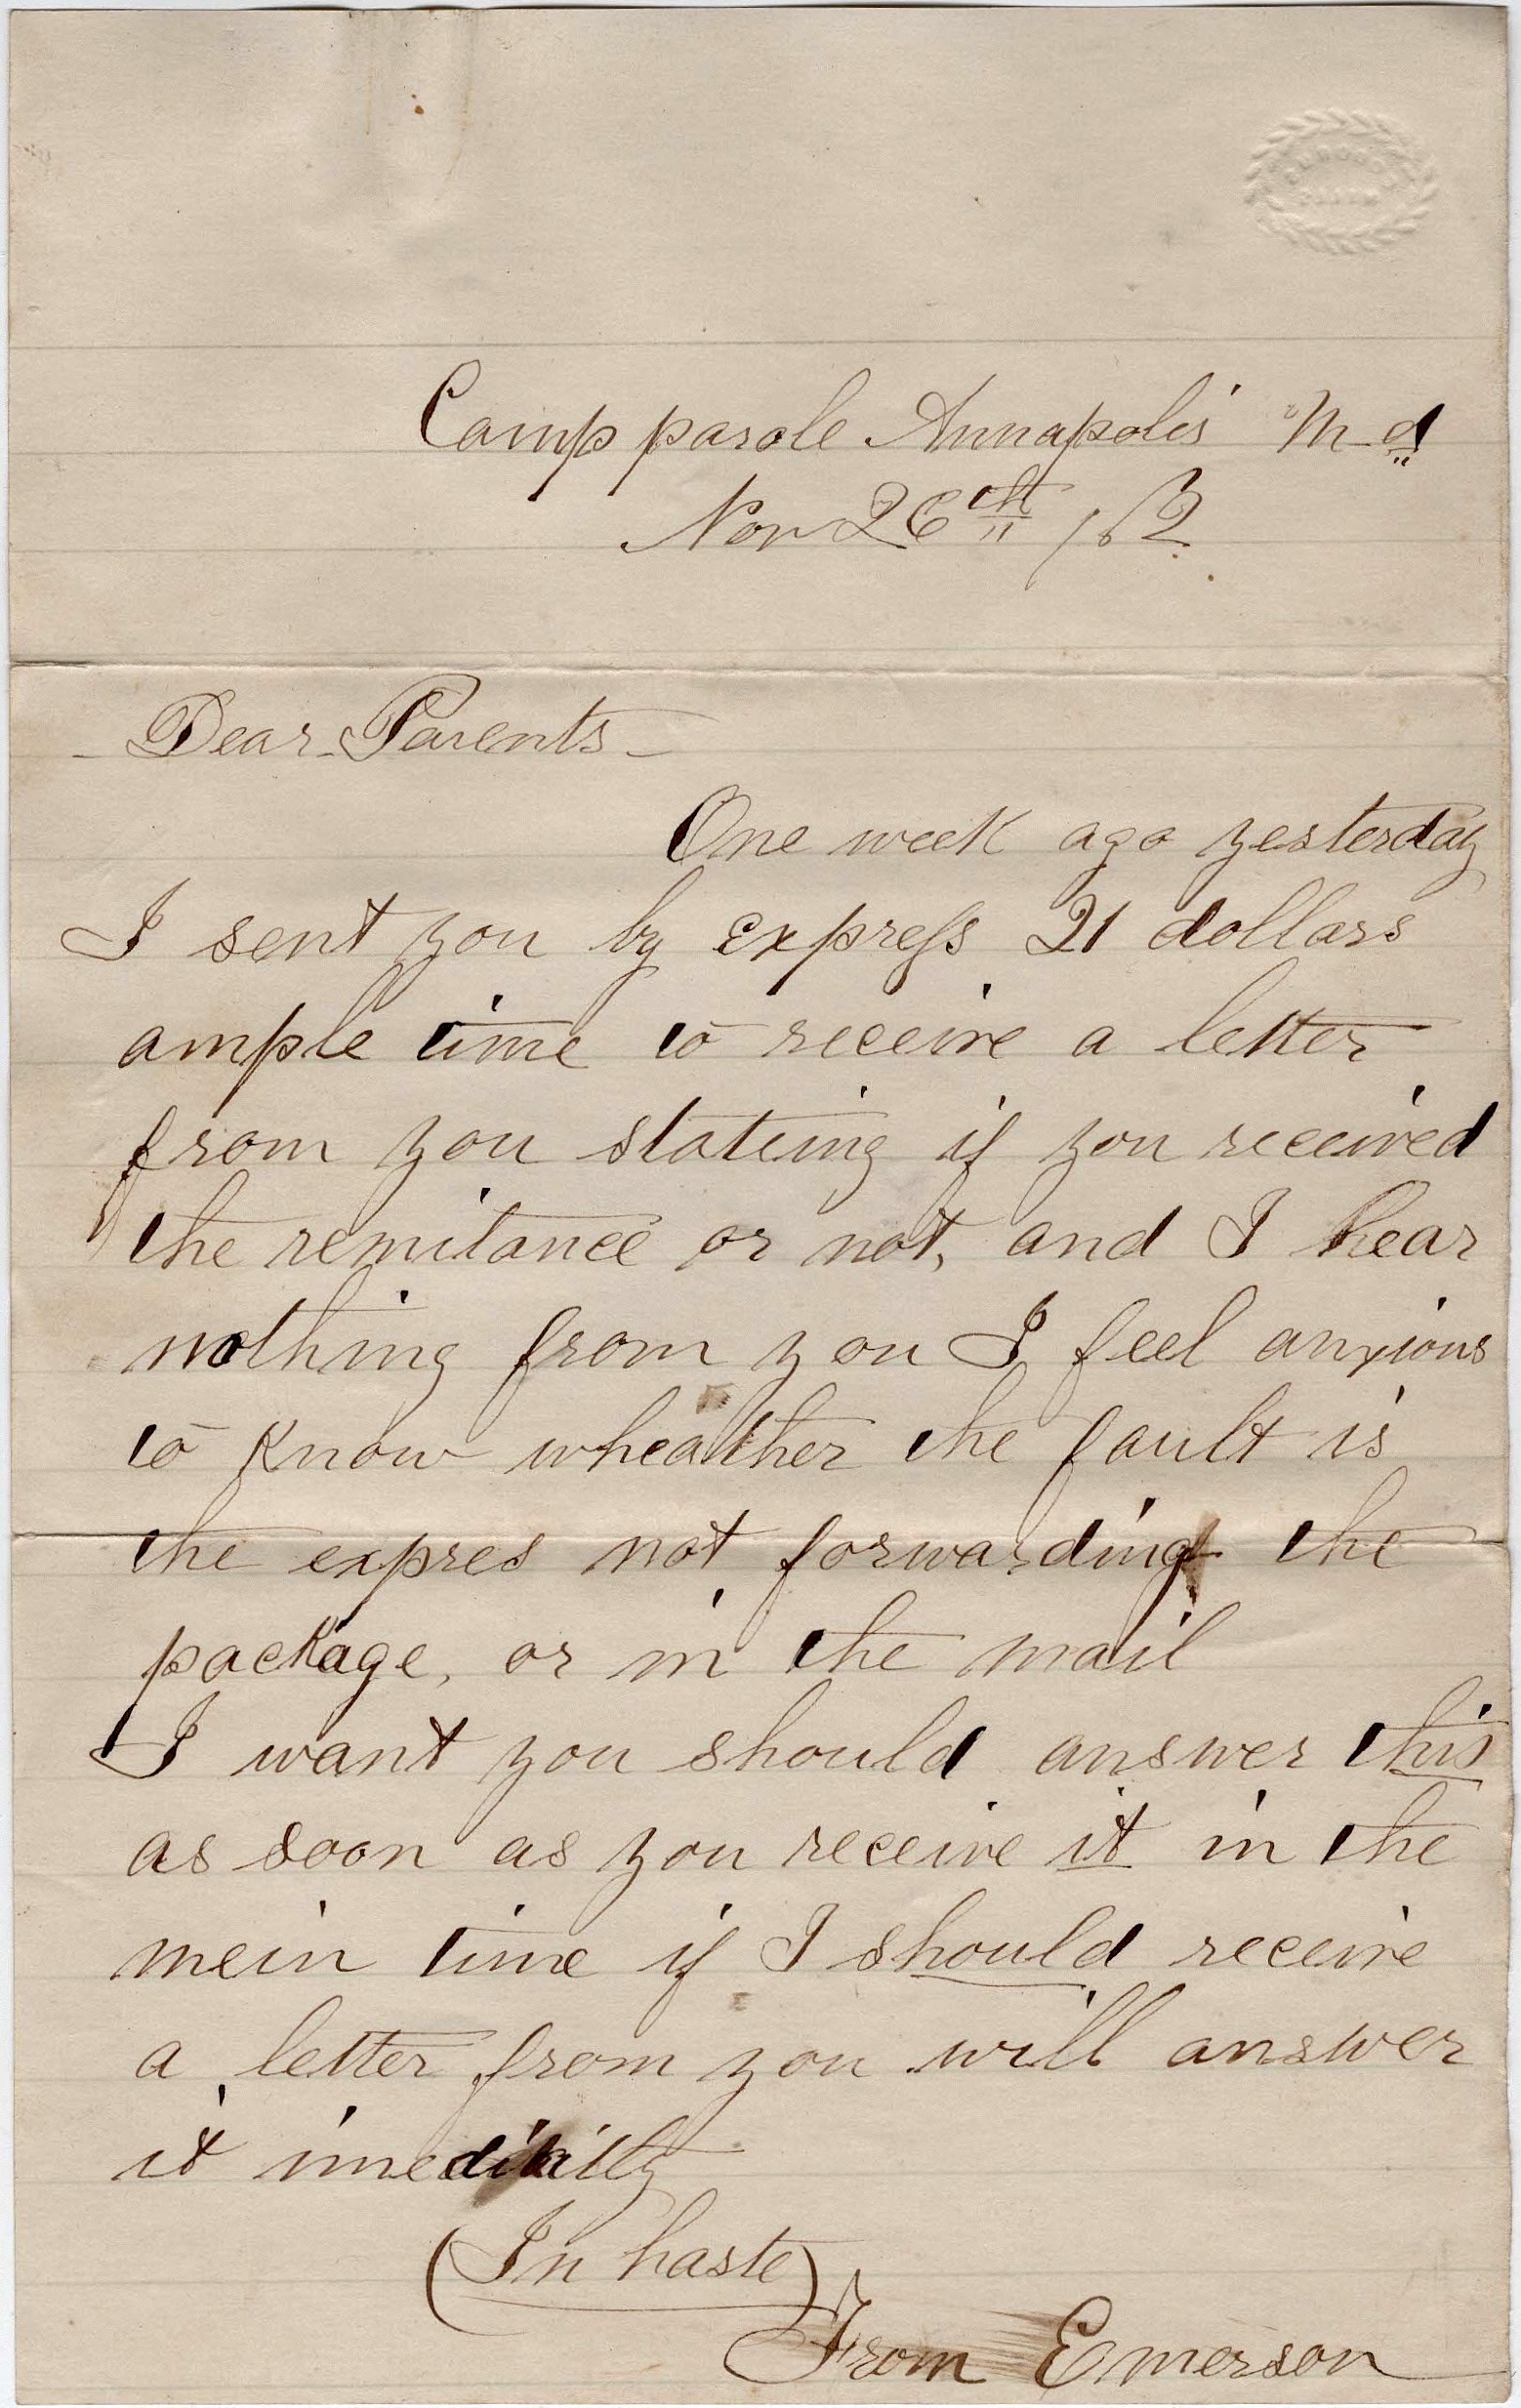 Camp parole Annapolis Md
Nov 26th /62
Dear Parents
One week ago yesterday
I sent you by express 21 dollars
ample time to receive a letter
from you stateing if you received
the remitance or not, and I hear
nothing from you I feel anxious
to know wheather the fault is
the expres not forwarding the
package, or in the mail
I want you should answer this
as soon as you receive it in the
mein time if I should receive
a letter from you will answer
it
(In haste)
From Emerson